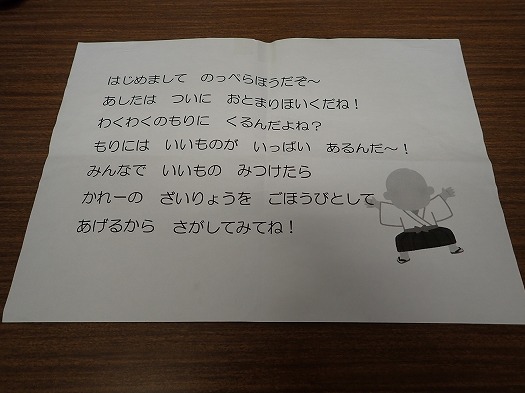 はじめまして　のっぺらぼうだぞ～
あしたは　ついに　おとまりほいくだね！
わくわくのもりに　くるんだよね？
もりには　いいものが　いっぱい　あるんだ～！
みんなで　いいもの　みつけたら
かれーの　ざいりょうを　ごほうびとして
あげるから　さがしてみてね！